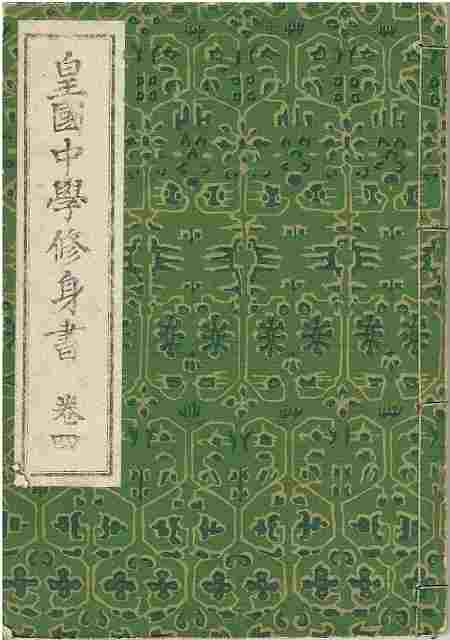 皇國中學修身書 卷四